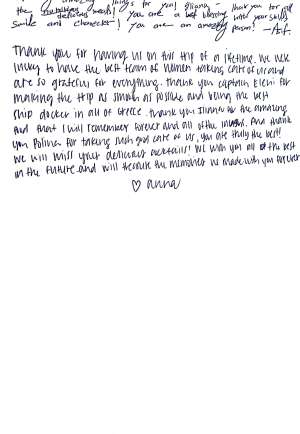 the amazing things for you! Briana - thank you for all
delicious meals! You are a blessing with your skills
smile and character! You are an amazing person! - A.F.
Thank you for having us on this trip of a lifetime. We were
lucky to have the best team of women taking care of us and
are so grateful for everything. Thank you captain Eleni for
making the trip as smooth as possible and being the best
ship docker in all of Greece. Thank you for the amazing
food that I will remember forever and all of the. And thank
you Polina for taking such good care of us, you are truly the best!
We will miss your delicious cocktails! We wish you all of the best
in the future and will treasure the memories we made with you forever
♡ anna